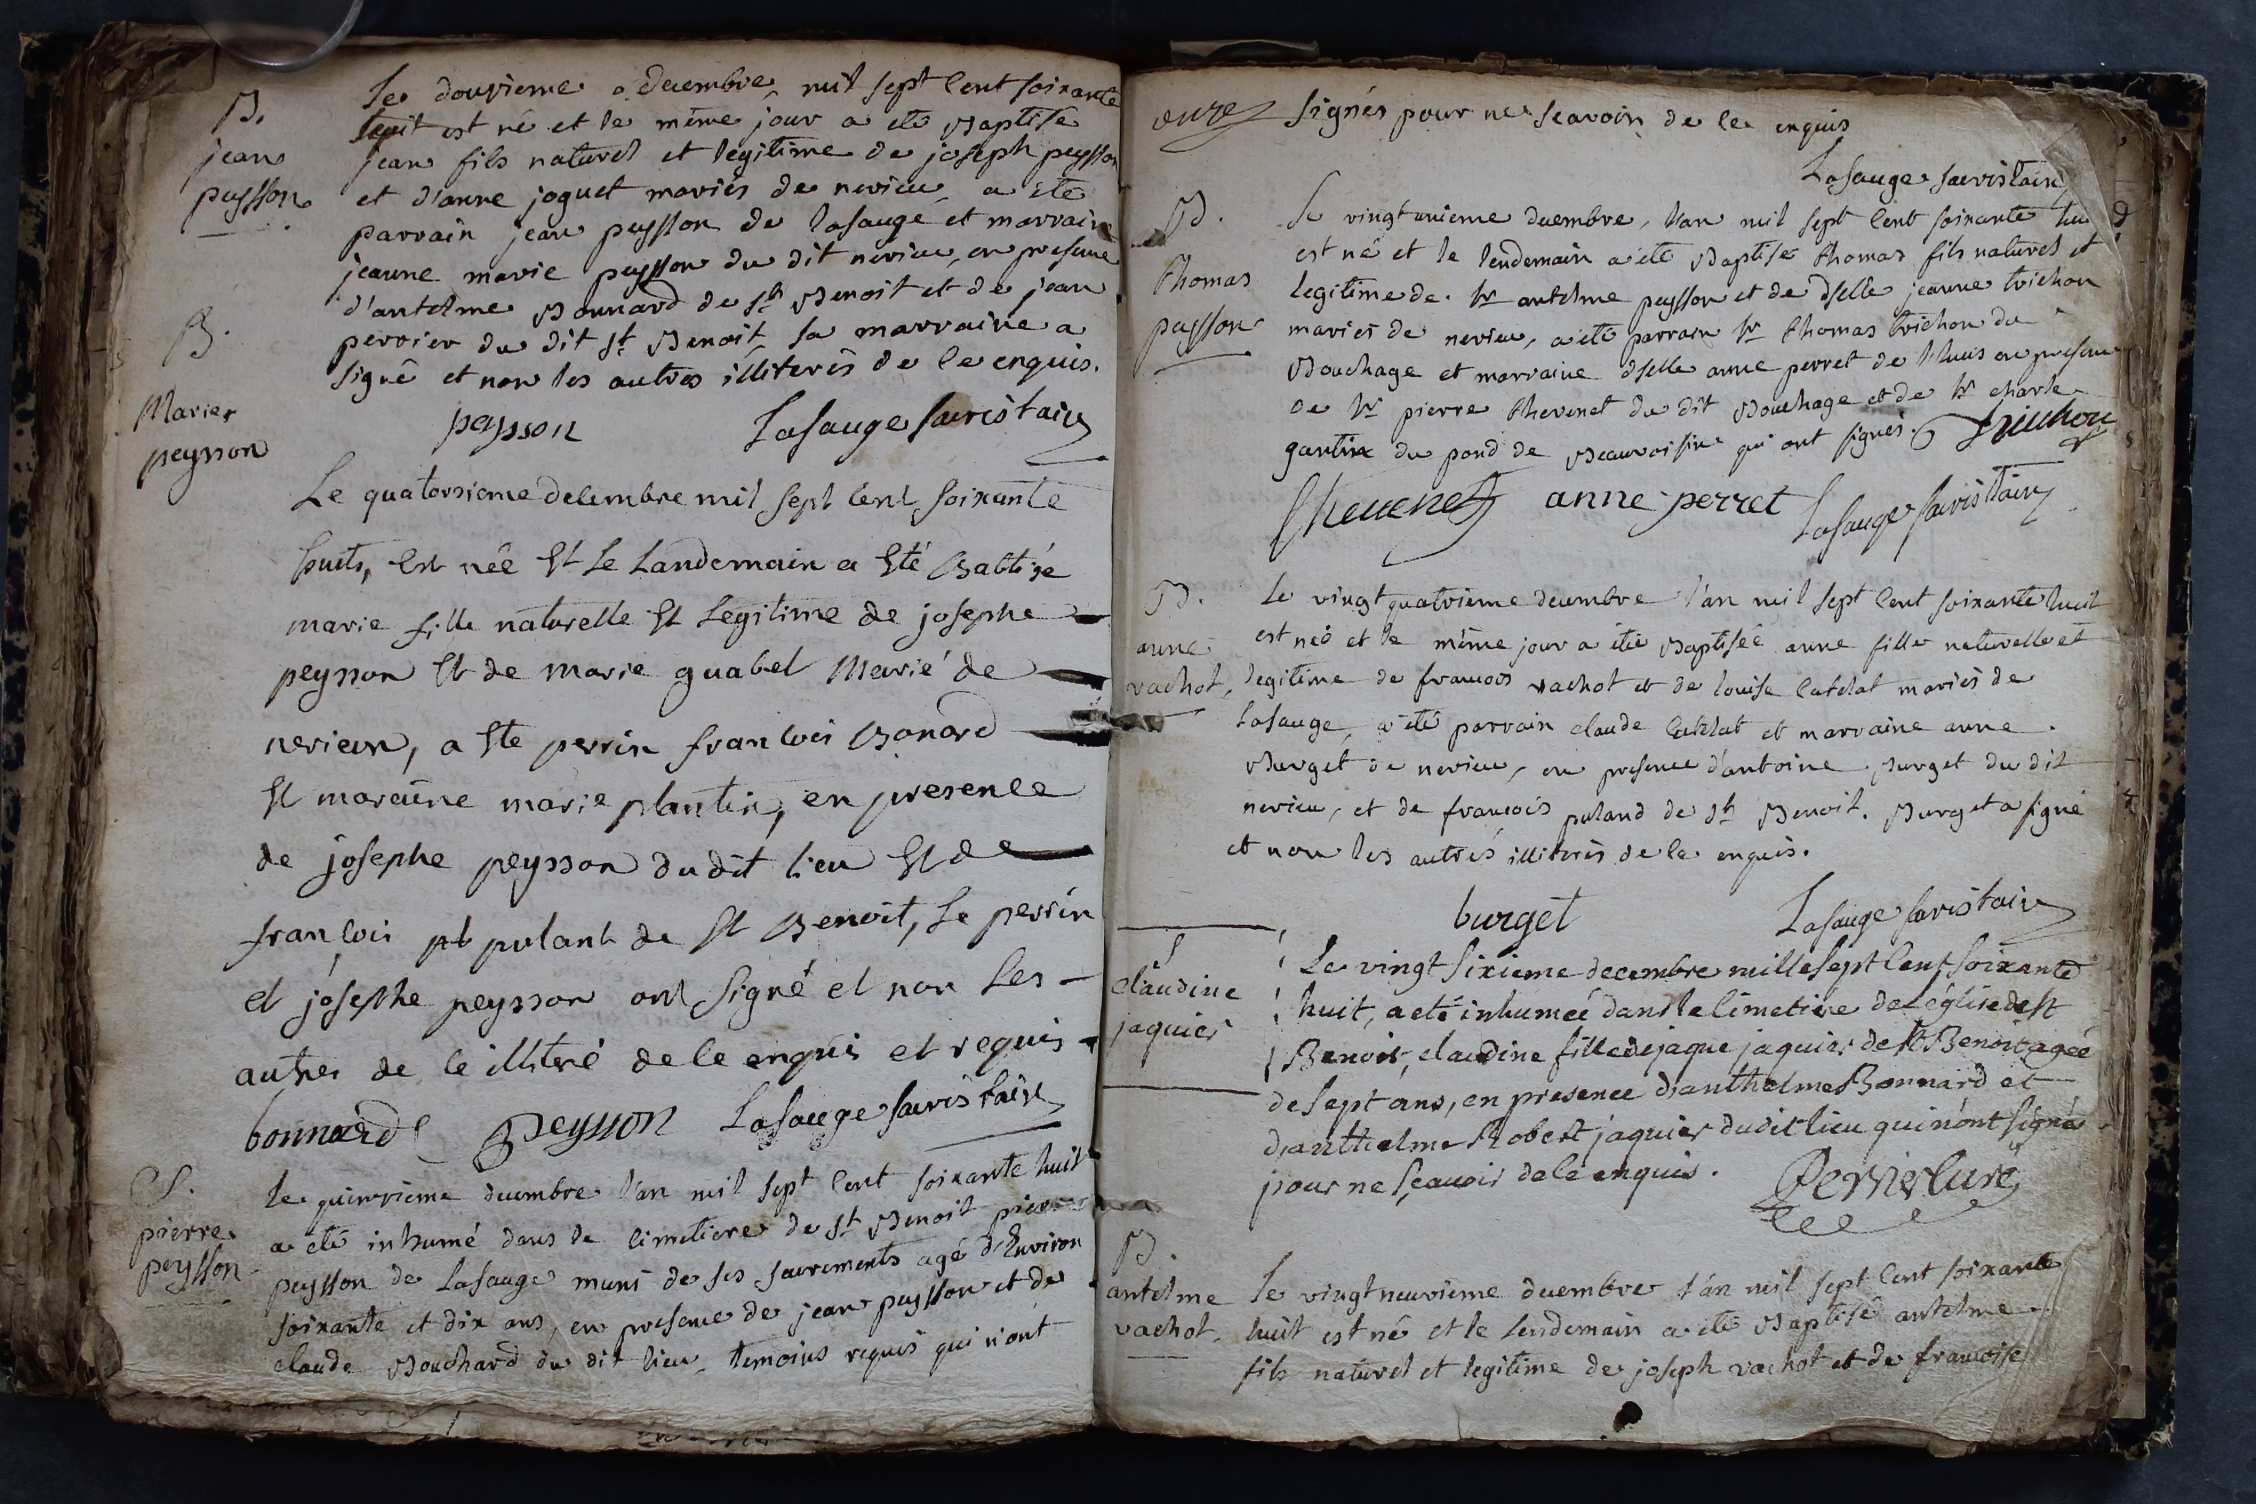 B.
jean
peysson
Le douzieme decembre mil sept cent soixante
huit est né et le même jour a été Baptisé
jean fils naturel et legitime de joseph peysson
et d'anne joguet mariés de nerieu, a été
parrain jean peysson de lasauge et marraine
jeanne marie peysson du dit nerieu, en presence
d'antelme Bonnard de st Benoit et de jean
perrier du dit st Benoit, la marraine a
signé et non les autres illiterés de ce enquis.
peysson Lasauge sacristain
B.
Marie
peysson
Le quatorsieme decembre mil sept cent soixante
huits, est née Et le Landemain a Eté Babtisé
marie fille naturelle Et Legitime de josephe
peysson Et de marie guabel Marié de
nerieux, a Ete perrin francois Bonard
Et maraine marie plantin, en presence
de josephe peysson du dit lieu Et de
francois pulant de St Benoit, Le perrin
et josephe peysson ont signé et non Les
autres de ce illitéré de ce enquis et requis
bonnard peysson Lasauge sacristain
S.
pierre
peysson
le quinzieme decembre l'an mil sept cent soixante huit
a été inhumé dans le cimetiere de st Benoit pierre
peysson de Lasauge muni de ses sacrements agé d'Environ
soixante et dix ans, en presence de jean peysson et de
claude Bouchard du dit lieu, temoins requis qui n'ont
signés pour ne scavoir de ce enquis
Lasauge sacristain
B.
thomas
peysson
Le vingt unieme decembre, l'an mil sept cent soixante huit
est né et le lendemain a été Baptisé thomas fils naturel et
legitime de sr antelme peysson et de dselle jeanne trichon
mariés de nerieu, a été parrain sr thomas trichon du
Bouchage et marraine dselle anne perret de l'huis en presence
de sr pierre thevenet du dit Bouchage et de sr charle
gantin du pond de Beauvoisin qui ont signés. Trichon
Thevenet anne perret Lasauge sacristain
B.
anne
vachot
Le vingt quatrieme decembre l'an mil sept cent soixante huit
est née et le même jour a été Baptisée anne fille naturelle et
legitime de francois vachot et de louise catelat mariés de
Lasauge, a été parrain claude catelat et marraine anne
Burget de nerieu, en presence d'antoine Burget du dit
nerieu, et de francois puland de st Benoit. Burget a signé
et non les autres illiterés de ce enquis.
burget Lasauge sacristain
S
claudine
jaquier
Le vingt sixieme decembre mille sept cent soixante
huit, a eté inhumée dans le cimetiere de l'église de st
Benoit, claudine fille de jaque jaquier de st Benoit agée
de sept ans, en presence d'anthelme Bonnard et
d'anthelme Robert jaquier du dit lieu qui n'ont signés
pour ne sçavoir de ce enquis. Perrier Curé
B.
antelme
vachot
Le vingt neuvieme decembre l'an mil sept cent soixante
huit est né et le lendemain a été Baptisé antelme
fils naturel et legitime de joseph vachot et de francoise